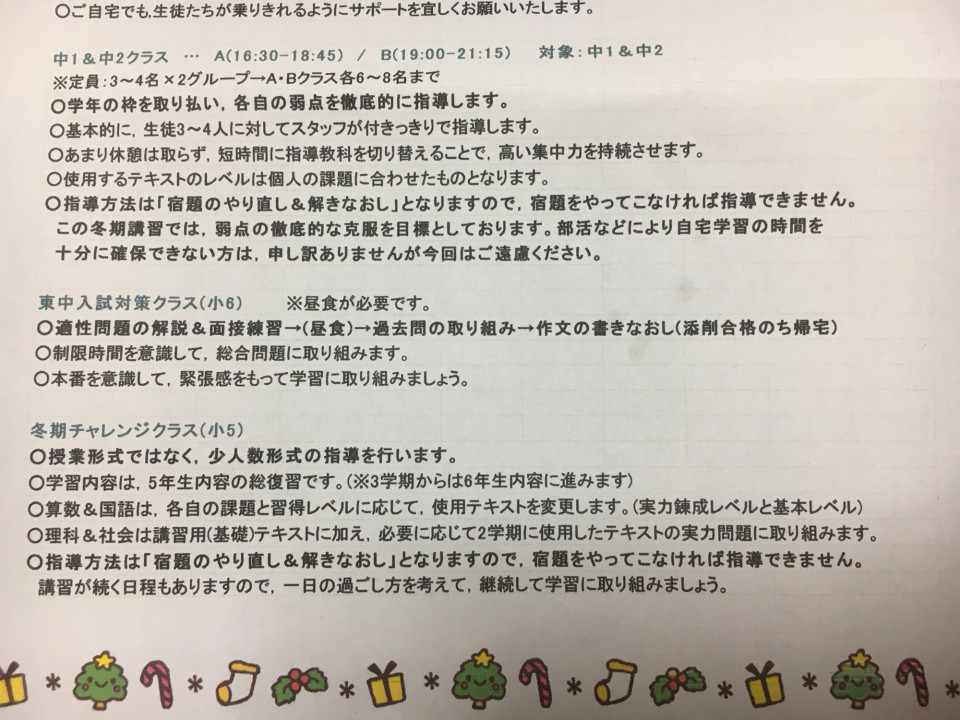 ○ご自宅でも,生徒たちが乗りきれるようにサポートを宜しくお願いいたします。
中1&中2クラス … A(16:30-18:45) / B(19:00-21:15) 対象:中1&中2
※定員:3~4名×2グループ→A・Bクラス各6~8名まで
○学年の枠を取り払い,各自の弱点を徹底的に指導します。
○基本的に,生徒3~4人に対してスタッフが付きっきりで指導します。
○あまり休憩は取らず,短時間に指導教科を切り替えることで,高い集中力を持続させます。
○使用するテキストのレベルは個人の課題に合わせたものとなります。
○指導方法は「宿題のやり直し&解きなおし」となりますので,宿題をやってこなければ指導できません。
この冬期講習では,弱点の徹底的な克服を目標としております。部活などにより自宅学習の時間を
十分に確保できない方は,申し訳ありませんが今回はご遠慮ください。
東中入試対策クラス(小6) ※昼食が必要です。
○適性問題の解説&面接練習→(昼食)→過去問の取り組み→作文の書きなおし(添削合格のち帰宅)
○制限時間を意識して,総合問題に取り組みます。
○本番を意識して,緊張感をもって学習に取り組みましょう。
冬期チャレンジクラス(小5)
○授業形式ではなく,少人数形式の指導を行います。
○学習内容は,5年生内容の総復習です。(※3学期からは6年生内容に進みます)
○算数&国語は,各自の課題と習得レベルに応じて,使用テキストを変更します。(実力錬成レベルと基本レベル)
○理科&社会は講習用(基礎)テキストに加え,必要に応じて2学期に使用したテキストの実力問題に取り組みます。
○指導方法は「宿題のやり直し&解きなおし」となりますので,宿題をやってこなければ指導できません。
講習が続く日程もありますので,一日の過ごし方を考えて,継続して学習に取り組みましょう。